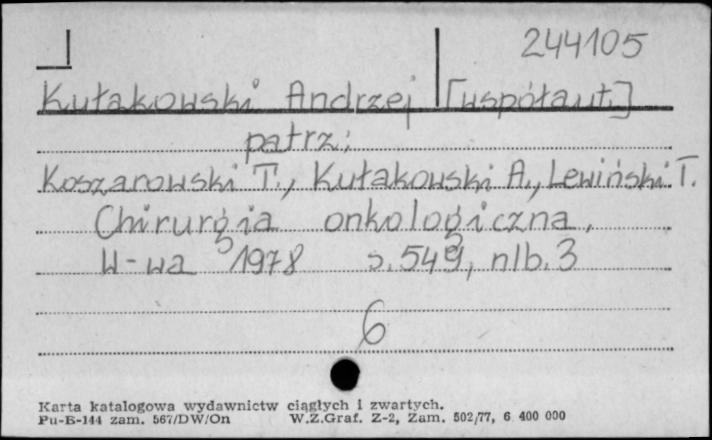 244105
Kułakowski Andrzej [współaut.]
patrz:
Koszarowski T., Kułakowski A., Lewiński T.
Chirurgia onkologiczna.
W-wa 1978 s. 549, nlb. 3
6
Karta katalogowa wydawnictw ciągłych i zwartych.
Pu-B-144 zam. 567/DW/On W.Z.Graf. Z-2, Zam. 502/77, 6 400 000